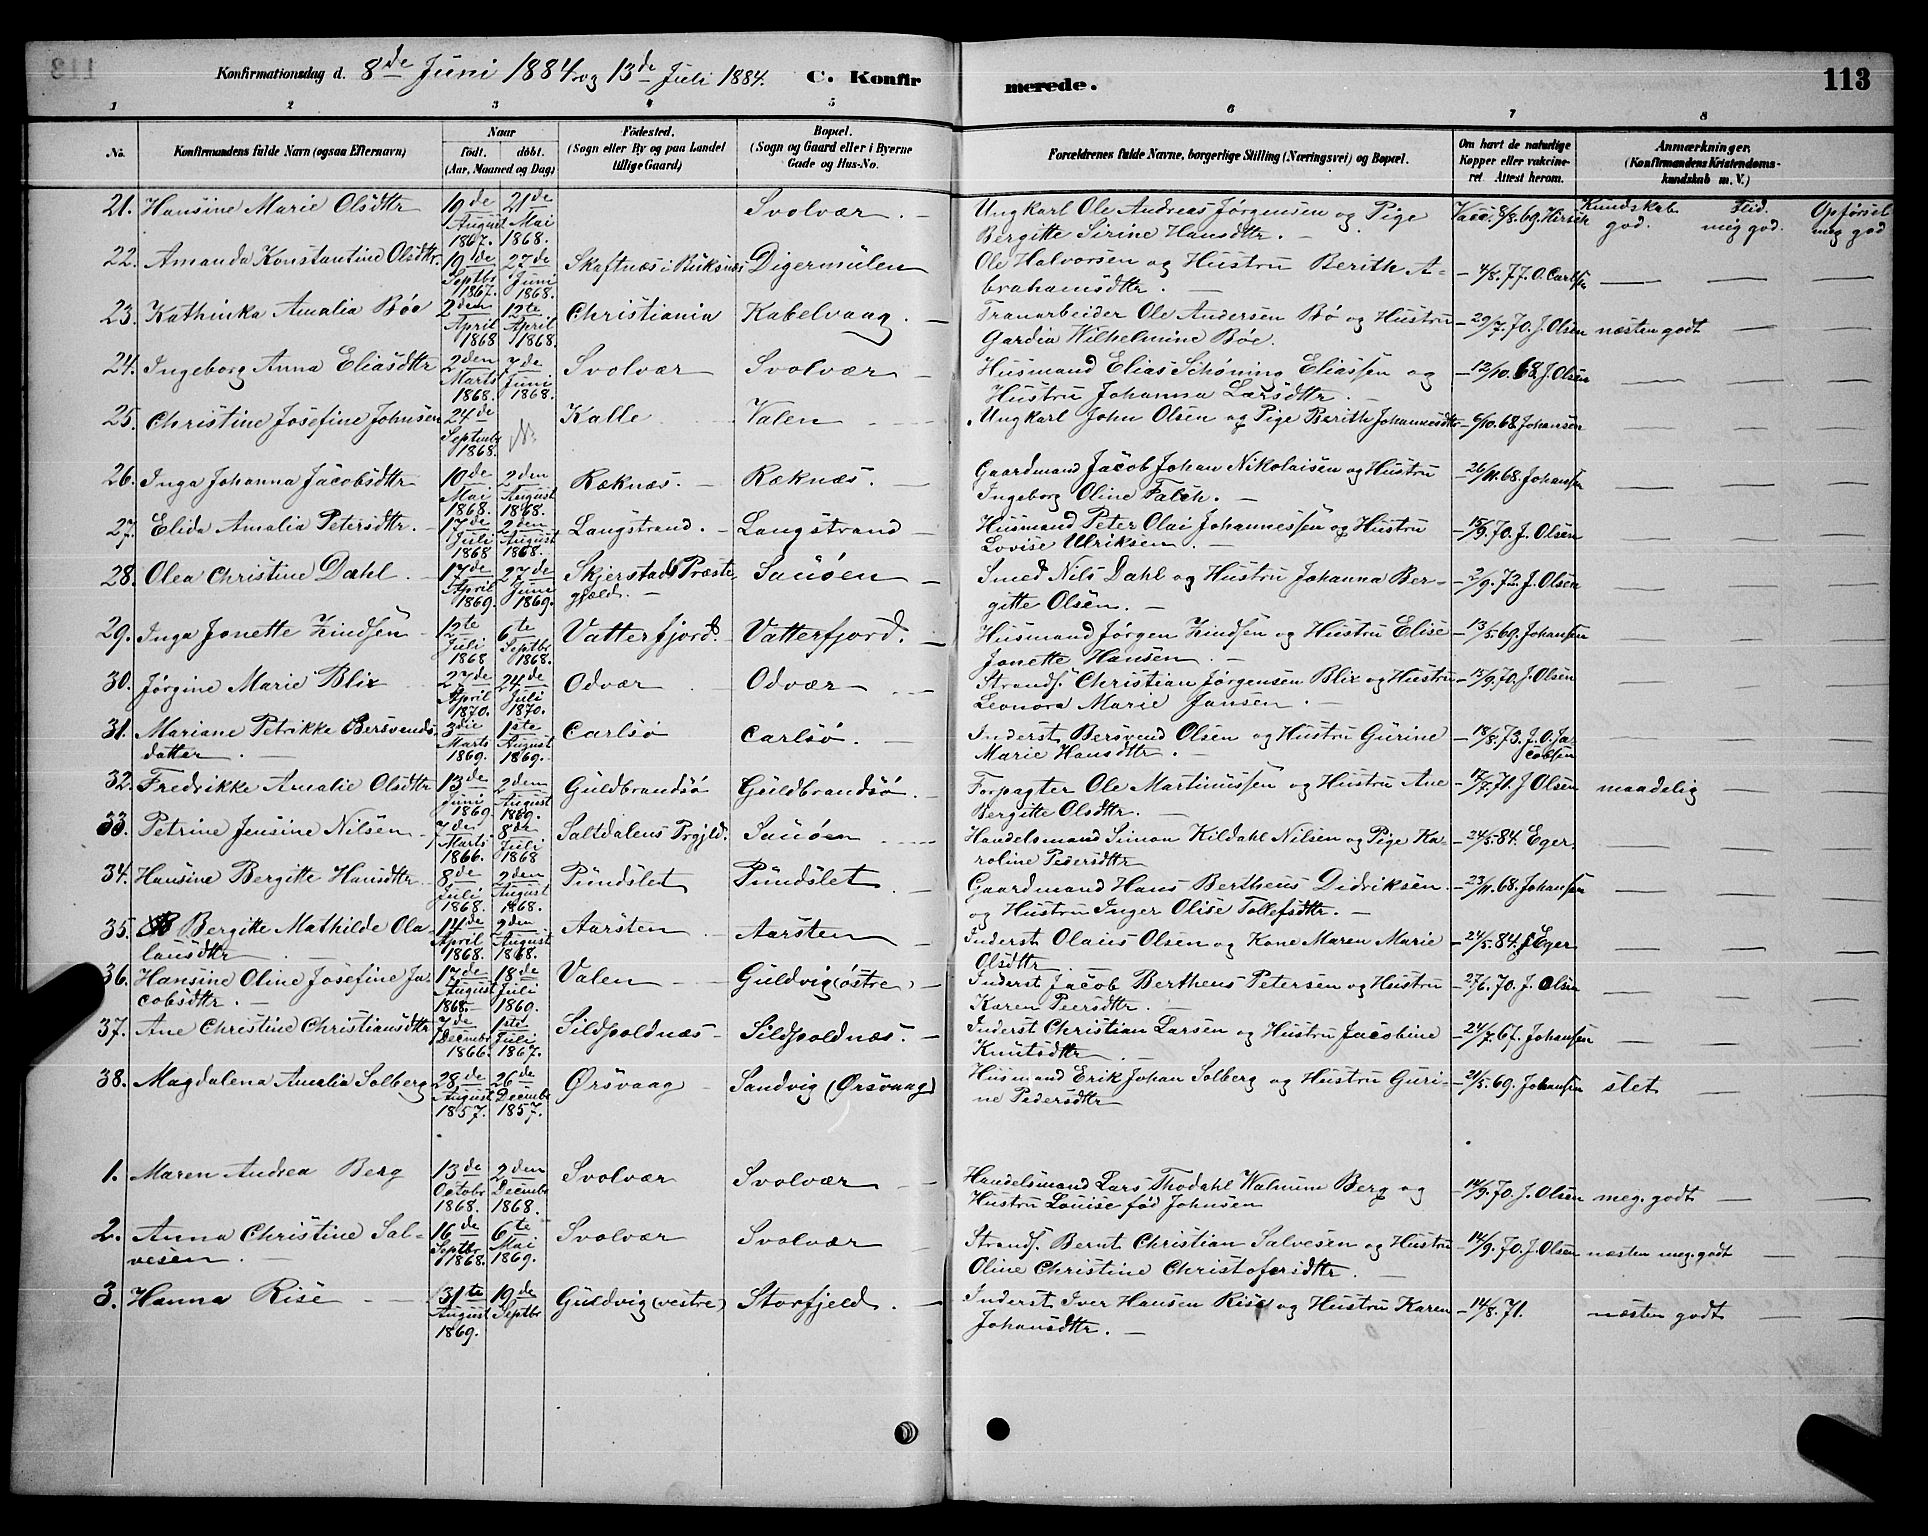 Konfirmationsdag d. 8de Juni 1884 og 13de Juli 1884. C. Konfirmerede. 113
1 2 3 4 5 6 7 8
No. Konfirmandens fulde Navn (ogsaa Efternavn) Naar født. døbt. (Aar, Maaned og Dag) Fødested. (Sogn eller By og paa Landet tillige Gaard) Bopæl. (Sogn og Gaard eller i Byerne Gade og Hus-No. Forældrenes fulde Navne, borgerlige Stilling (Næringsvei) og Bopæl. Om havt de naturlige Kopper eller vakcineret. Attest herom. Anmærkninger. (Konfirmandens Kristendomskundskab m. V.)
Kundskab Flid. Opførsel
21. Hansine Marie Olsdttr 19de August 1867. 21de Mai 1868. Svolvær. Ungkarl Ole Andreas Jørgensen og Pige Bergitte Sirine Hansdttr. Vacc. 8/8.69. Hirsch god. meg god. meg god
22. Amanda Konstantine Olsdttr. 19de Septbr 1867. 27de Juni 1868. Skaftnæs i Buksnæs Digermulen Ole Halvorsen og Hustru Berith Abrahamsdttr. — 4/8.77. O. Carlsen — — —
23. Kathinka Amalia Bøe 2den April 1868 12te April 1868. Christiania Kabelvaag. Tranarbeider Ole Andersen Bø og Hustru Gardia Wilhelmine Bøe. — 29/7.70. J. Olsen næsten godt — —
24. Ingeborg Anna Eliasdttr 2den Marts 1868. 7de Juni 1868. Svolvær Svolvær Husmand Elias Schøning Eliassen og Hustru Johanna Larsdttr. — 12/10.68 J. Olsen — — —
25. Christine Josefine Johnsen 24de Septembr 1868. Kalle Valen Ungkarl John Olsen og Pige Berith Johannesdttr — 6/10.68 Johansen — — —
26. Inga Johanna Jacobsdttr 10de Mai 1868. 2den August 1868. Reknæs. Reknæs. Gaardmand Jacob Johan Nikolaisen og Hustru Ingeborg Oline Falch. — 26/11.68. Johansen — — —
27. Elida Amalia Petersdttr. 17de Juli 1868 2den August 1868. Langstrand. Langstrand Husmand Peter Olai Johannessen og Hustru Lovise Ulriksen. — 15/9.70. J. Olsen — — —
28. Olea Christine Dahl. 17de April 1869. 27de Juni 1869. Skjerstads Præstegjæld. Sauøen Smed Nils Dahl og Hustru Johanna Bergitte Olsen. — 2/9.72. J. Olsen — — —
29. Inga Jonette Zindsen 12te Juli 1868 6te Septbr 1868. Vatterfjord. Vatterfjord. Husmand Jørgen Zindsen og Hustru Elise Jonette Hansen. — 13/5.69. Johansen — — —
30. Jørgine Marie Blix 27de April 1870. 24de Juli 1870. Odvær Odvær Strands. Christian Jørgensen Blix og Hustru Leonora Marie Jansen. — 15/9.70. J. Olsen — — —
31. Mariane Petrikke Bersvendsdatter. 3die Marts 1869. 1ste August 1869. Carlsø Carlsø. Inderst Bersvend Olsen og Hustru Gurine Marie Hansdttr. — 18/8.73. J.O. Jacobsen — — —
32. Fredrikke Amalie Olsdttr 13de Juni 1869 2den August 1869. Guldbrandsø Guldbrandsø. Forpagter Ole Martinussen og Hustru Ane Bergitte Olsdttr. — 17/7.71. J Olsen maadelig — —
33. Petrine Jensine Nilsen 7de Marts 1866. 8de Juli 1868 Saltdalens Prgjld. Sauøen Handelsmand Simon Kildahl Nilsen og Pige Karoline Pedersdttr — 24/5.84. Eger. — — —
34. Hansine Bergitte Hansdttr. 8de Juli 1868. 2den August 1868. Pundslet Pundslet Gaardmand Hans Bertheus Didriksen og Hustru Inger Olise Tollefsdttr. — 23/11.68. Johansen — — —
35. Bergitte Mathilde Olalausdttr 14de April 1868. 2den August 1868. Aarsten Aarsten Inderst Olaus Olsen og Kone Maren Marie Olsdttr — 24/5.84. Eger — — —
36. Hansine Oline Josefine Jacobsdttr. 17de August 1868. 18de Juli 1869. Valen Guldvig (østre) Inderst Jacob Bertheus Petersen og Hustru Karen Peersdttr. — 27/6.70. J. Olsen — — —
37. Ane Christine Christiansdttr 7de Decembr 1866. 1ste Juli 1867. Sildpoldnæs Sildpoldnæs. Inderst Christian Larsen og Hustru Jacobine Knutsdttr. — 24/7.67. Johansen — — —
38. Magdalena Amalia Solberg 28de August 1857. 26de Decembr 1857. Ørsvaag Sandvig (Ørsvaag) Husmand Erik Johan Solberg og Hustru Gurine Pedersdttr — 21/5.69. Johansen slet — —
1. Maren Andrea Berg 13de Octobr 1868. 2den Decembr 1868. Svolvær Svolvær Handelsmand Lars Thodahl Walnum Berg og Hustru Louise fød Johnsen — 14/9.70. J. Olsen meg. godt — —
2. Anna Christine Salvesen. 16de Septbr 1868. 6te Mai 1869. Svolvær Svolvær Strands. Bernt Christian Salvesen og Hustru Oline Christine Christofersdttr. — 14/9.70. J. Olsen næsten meg. godt — —
3. Hanna Rise 31te August 1869. 19de Septbr Guldvig (vestre) Storfjeld. Inderst Iver Hansen Rise og Hustru Karen Johansdttr. — 14/8.71. næsten godt — —